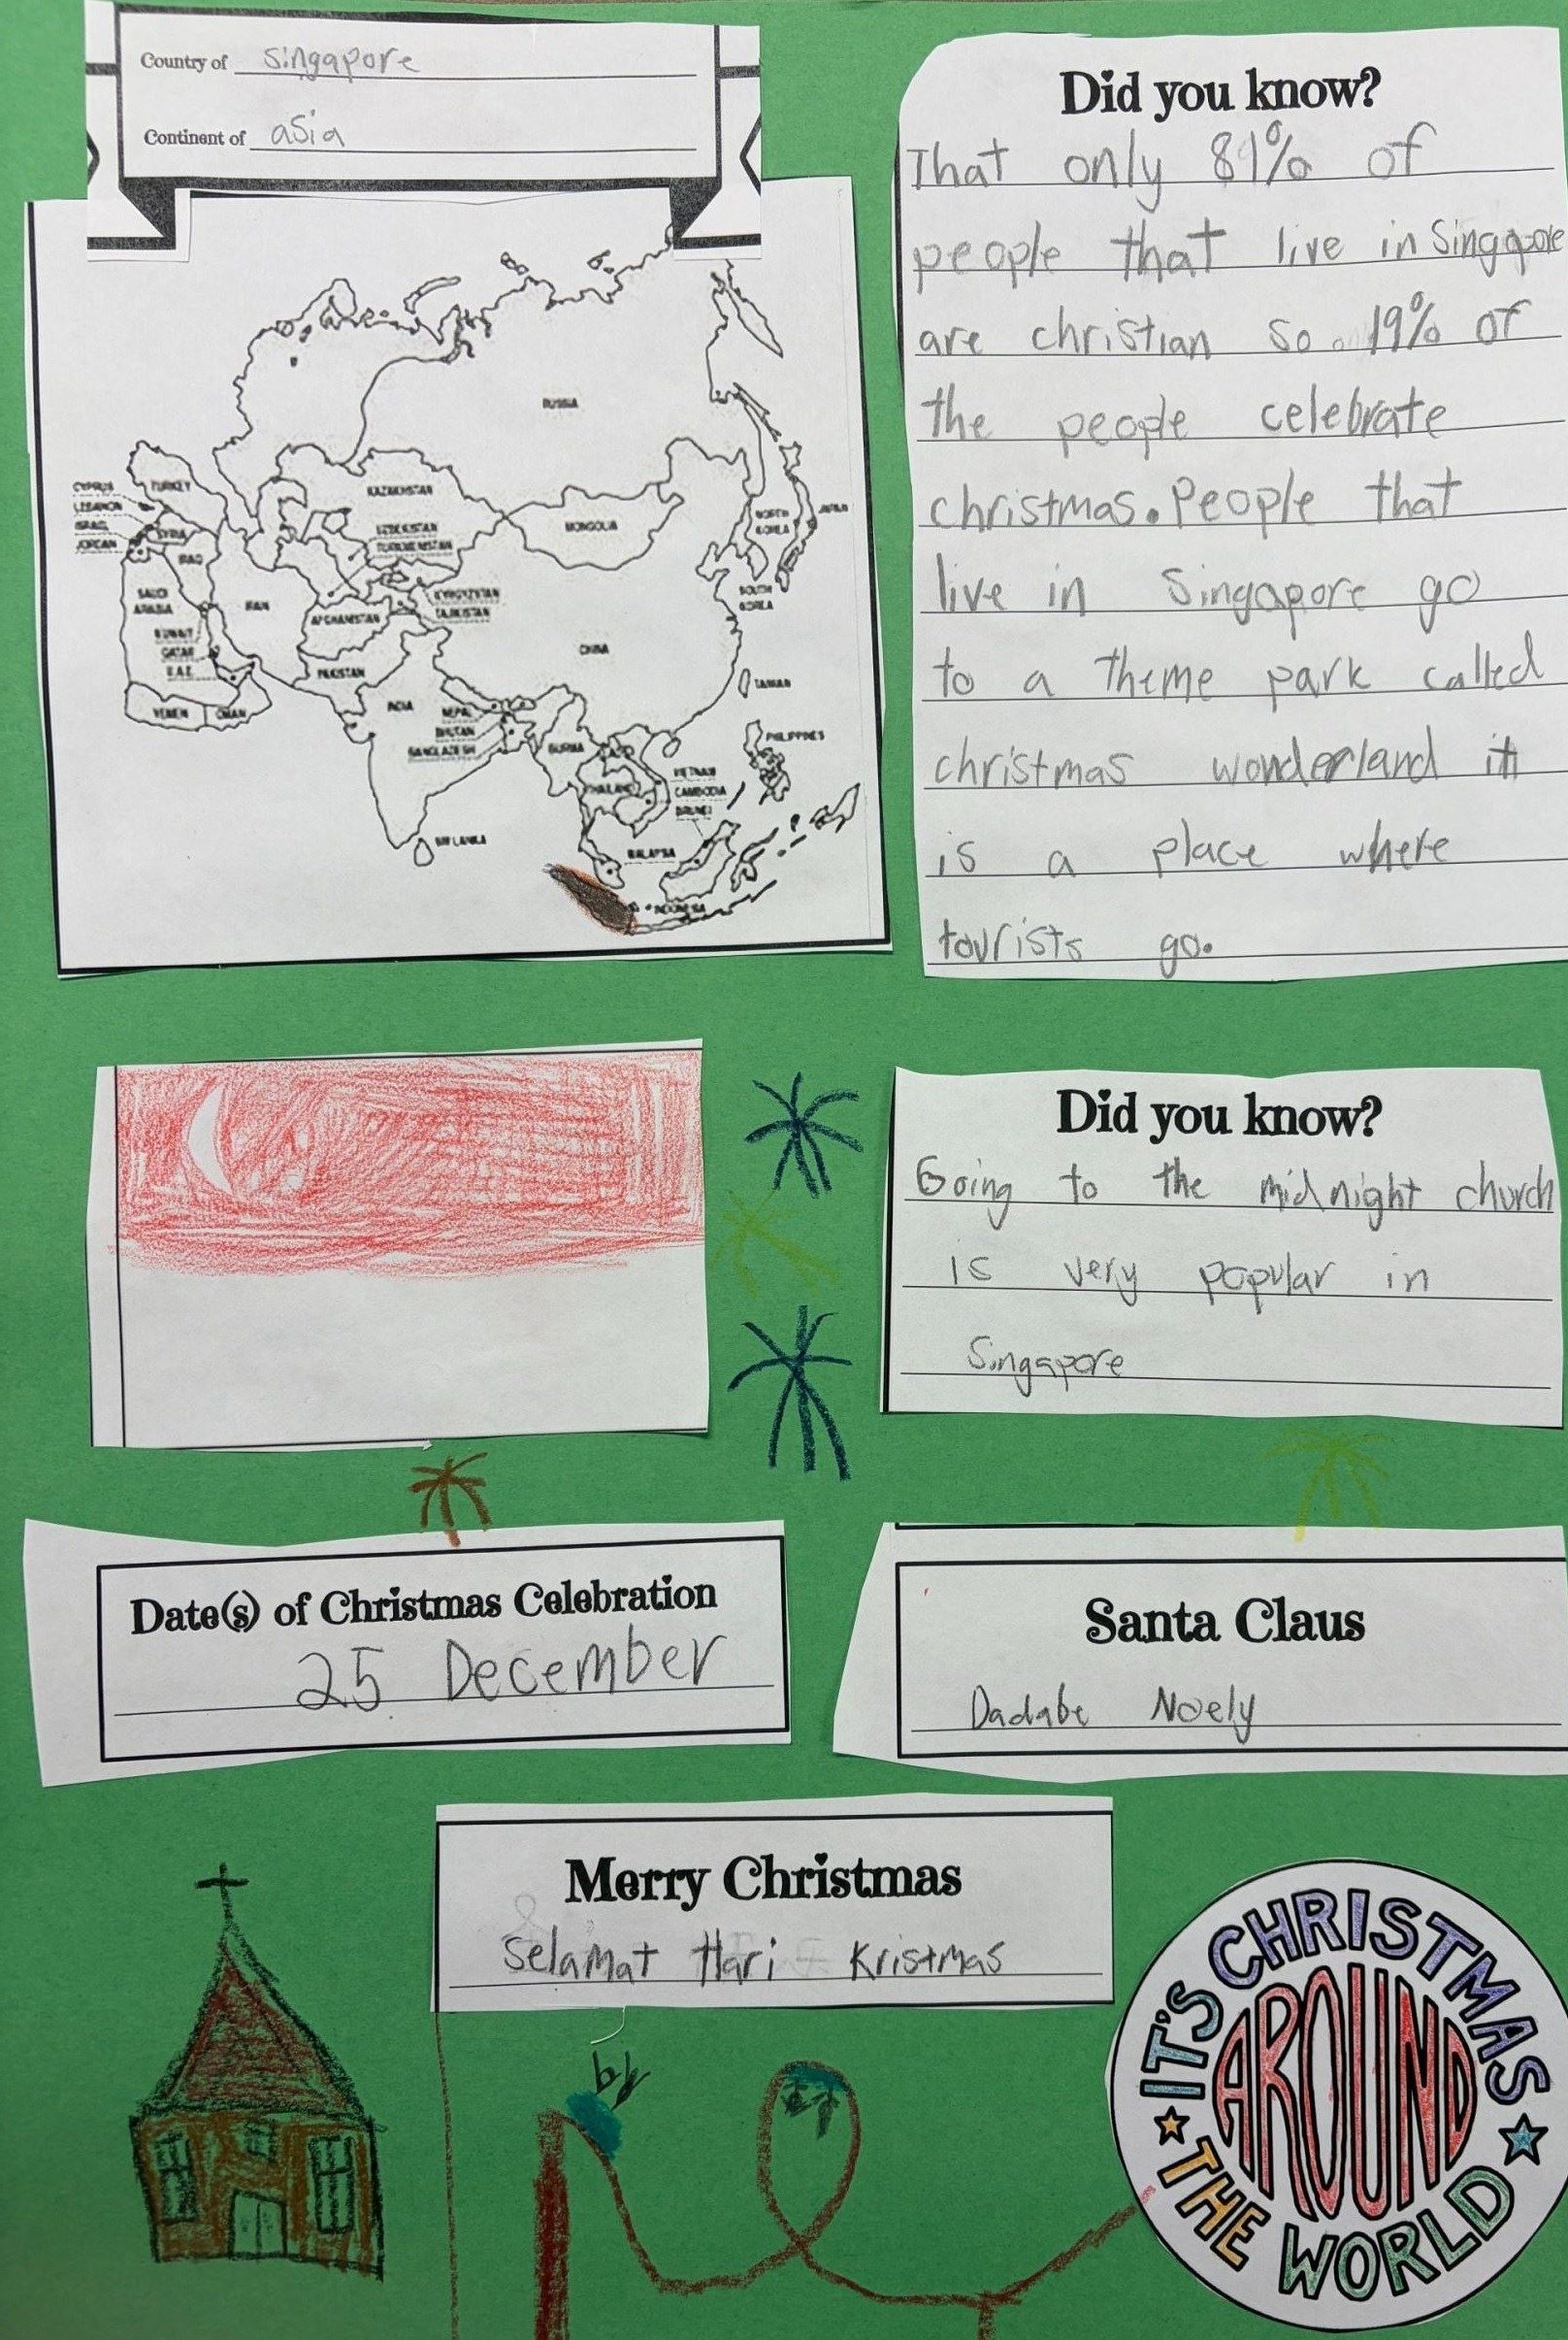 Country of singapore
Continent of asia
RUSSIA
CYPRUS
TURKEY
LEBANON
KAZAKHSTAN
ISRAEL
SYRIA
JORDAN
IRAQ
UZBEKISTAN
TURKMENISTAN
MONGOLIA
NORTH
KOREA
JAPAN
SAUDI
ARABIA
IRAN
AFGHANISTAN
KYRGYZSTAN
TAJIKISTAN
SOUTH
KOREA
KUWAIT
QATAR
U.A.E.
PAKISTAN
CHINA
YEMEN
OMAN
INDIA
NEPAL
BHUTAN
BANGLADESH
BURMA
LAOS
TAIWAN
PHILIPPINES
THAILAND
VIETNAM
CAMBODIA
BRUNEI
SRI LANKA
MALAYSIA
INDONESIA
Did you know?
That only 81% of
people that live in Singapore
are christian so 19% of
the people celebrate
christmas. People that
live in Singapore go
to a theme park called
christmas wonderland it
is a place where
tourists go.
Did you know?
Going to the midnight church
is very popular in
Singapore
Date(s) of Christmas Celebration
25 December
Santa Claus
Dadabe Noely
Merry Christmas
Selamat Hari Kristmas
IT'S CHRISTMAS
AROUND
THE WORLD